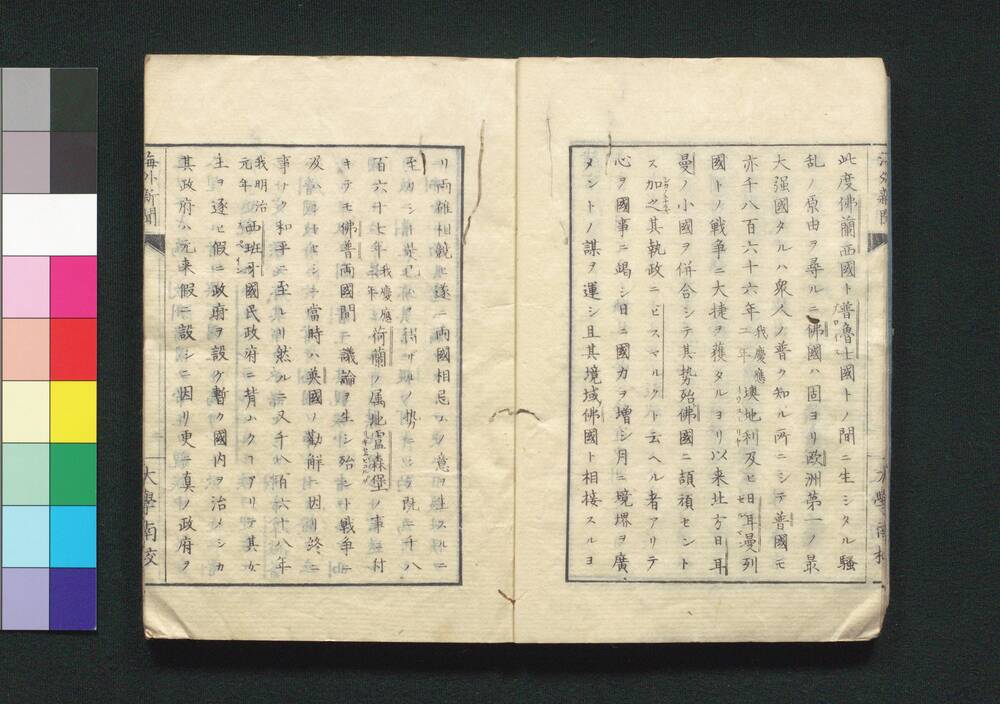 此度佛蘭西國ト普魯士國トノ間ニ生シタル騷
乱ノ原由ヲ尋ルニ佛國ハ固ヨリ欧洲第一ノ最
大强國タルハ衆人ノ普ク知ル所ニシテ普國モ
亦千八百六十六年我慶應二年墺地利及ヒ日耳曼列
國トノ戦争ニ大捷ヲ獲タルヨリ以来北方日耳
曼ノ小國ヲ併合シテ其势殆佛國ニ頡頏セント
ス加之其執政ニビスマルクト云ヘル者アリテ
心ヲ國事ニ竭シ日ニ國力ヲ增シ月ニ境堺ヲ廣
メントノ謀ヲ運シ且其境域佛國ト相接スルヨ
リ両雄相競ヒ遂ニ両國相忌ムノ意ヲ生スルニ
至ルハ ノ势 既ニ千八
百六十七年我慶應三年荷蘭ノ属地盧森堡ノ事ニ付
キテモ佛普両國間ニ議論ヲ生シ殆ント戰争ニ
及ハントセシニ當時ハ英國ノ勸解ニ因リ終ニ
事ナク和平ニ至レリ然ルニ又千八百六十八年
我明治元年西班牙國民政府ニ背ハクヿアリテ其女
主ヲ逐ヒ假ニ政府ヲ設ケ暫ク國内ヲ治メシカ
其政府ハ元来假ニ設シニ因リ更ニ真ノ政府ヲ
海外新聞
大學南校